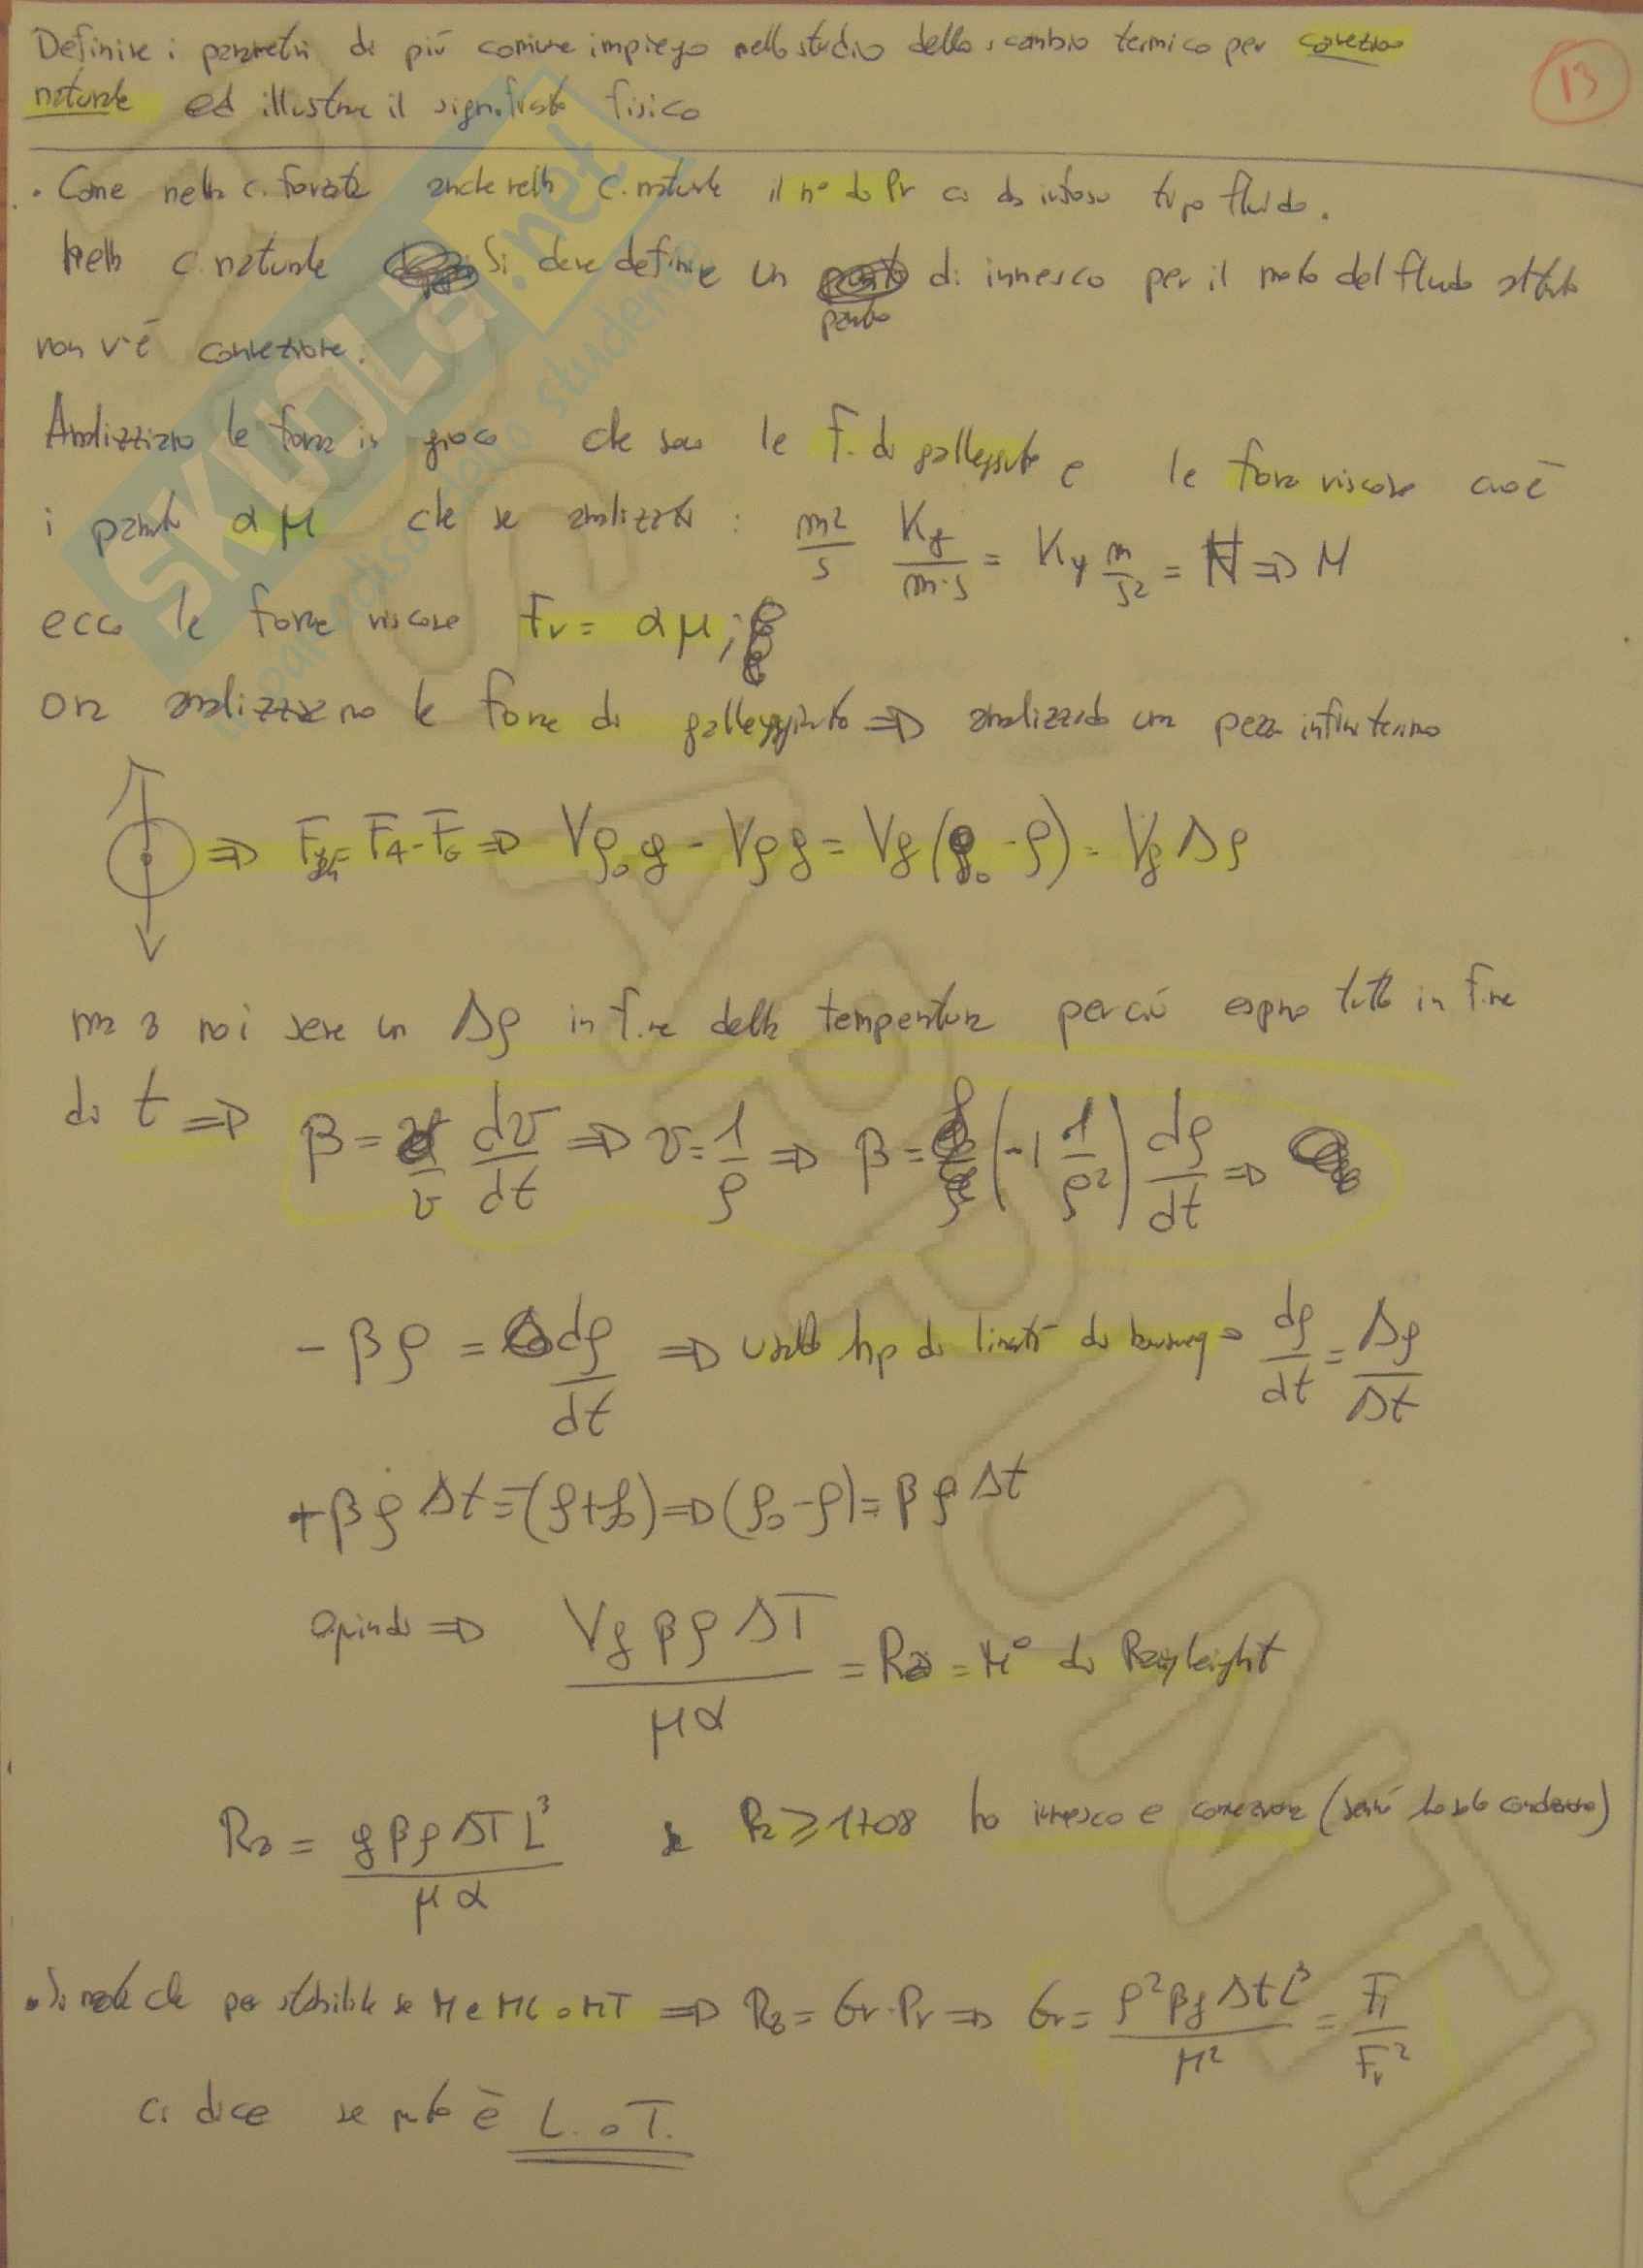 Definire i parametri di più comune impiego nello studio dello scambio termico per convezione
naturale ed illustrare il significato fisico
13
• Come nella c. forzata anche nella c. naturale il n° di Pr ci dà info su tipo fluido.
Nella c. naturale si deve definire un punto di innesco per il moto del fluido
non v'è convezione.
Analizziamo le forze in gioco che sono le F. di galleggiamento e le forze viscose cioè
i α μ che se analizzati : m²/s Kg/m·s = Kg m/s² = N ⇒ N
ecco le forze viscose Fv = α μ;
ora analizziamo le forze di galleggiamento ⇒ analizzando un pezzo infinitesimo
⇒ = FA - FG ⇒ Vρ₀g - Vρg = Vg(ρ₀ - ρ) = Vg Δρ
ma a noi serve un Δρ in f.ne della temperatura perciò esprimo tutto in f.ne
di t ⇒ β = 1/v dv/dt ⇒ v = 1/ρ ⇒ β = (-1 1/ρ²) dρ/dt ⇒
- β ρ = dρ/dt ⇒ hp di linearità di ⇒ dρ/dt = Δρ/Δt
+ β ρ Δt = -(ρ+ρ₀) ⇒ (ρ₀ - ρ) = β ρ Δt
Quindi ⇒ Vg β ρ ΔT / μ α = Ra = N° di Rayleight
Ra = g β ρ ΔT L³ / μ α se Ra ≥ 1708 ho innesco e convezione (sennò ho solo conduzione)
• Si nota che per stabilire se è ML o MT ⇒ Ra = Gr · Pr ⇒ Gr = ρ² β g Δt L³ / μ² = Fi / Fv²
Ci dice se moto è L. o T.
SKUOLA.net
il paradiso dello studente
APPUNTI